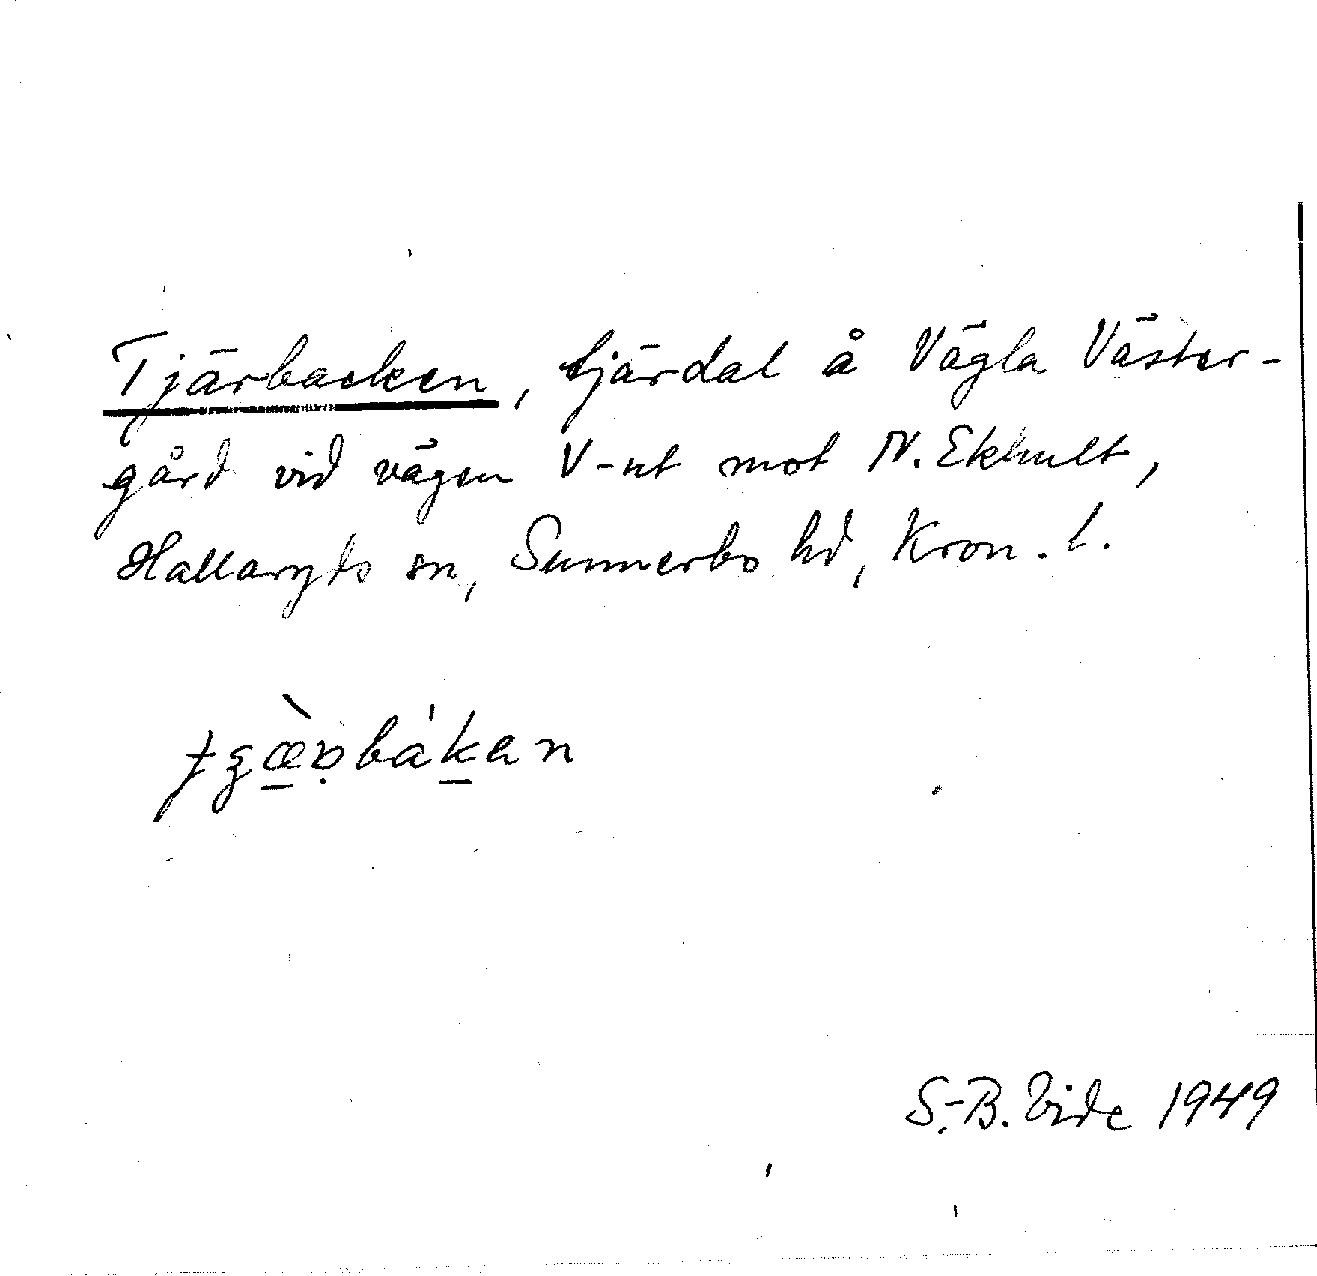 Tjärbacken, tjärdal å Vägla Väster-
gård vid vägen V-ut mot N. Ekhult,
Hallaryds sn, Sunnerbo hd, Kron. l.
S.-B. Vide 1949